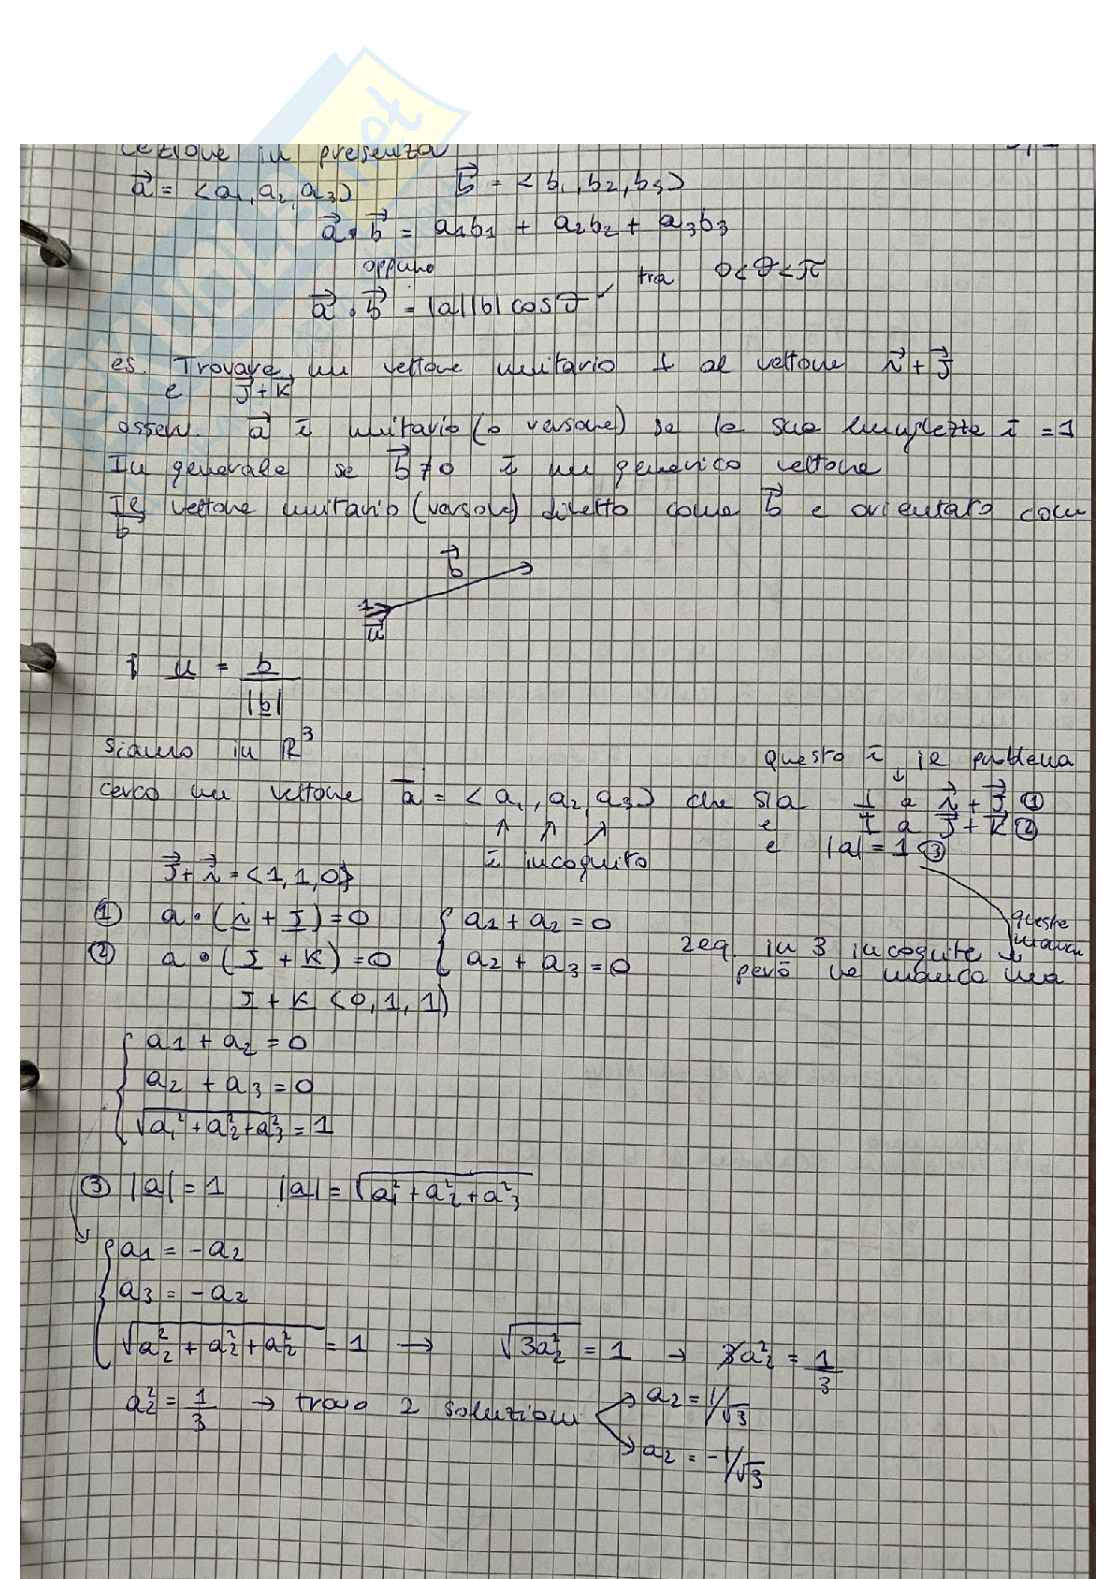 lezione in presenza
a⃗ = <a₁, a₂, a₃>    b⃗ = <b₁, b₂, b₃>
a⃗ · b⃗ = a₁b₁ + a₂b₂ + a₃b₃
oppure
a⃗ · b⃗ = |a||b| cosϑ    tra 0<ϑ<π
es. Trovare un vettore unitario ⊥ al vettore i⃗ + j⃗
e j⃗ + k⃗
osserv. a⃗ è unitario (o versore) se la sua lunghezza è = 1
In generale se b⃗ ≠ 0 è un generico vettore
Il vettore unitario (versore) diretto come b⃗ e orientato come
b
b⃗
1
u⃗
è u = b / |b|
siamo in R³    questo è il problema
cerco un vettore a⃗ = <a₁, a₂, a₃> che sia ⊥ a i⃗ + j⃗ ①
e ⊥ a j⃗ + k⃗ ②
è incognito    e |a| = 1 ③
j⃗ + i⃗ = <1, 1, 0>
① a · (i + j) = 0    { a₁ + a₂ = 0
② a · (j + k) = 0    { a₂ + a₃ = 0    2 eq. in 3 incognite
però ne manca una
j + k <0, 1, 1>
{ a₁ + a₂ = 0
a₂ + a₃ = 0
√(a₁² + a₂² + a₃²) = 1
③ |a| = 1    |a| = √(a₁² + a₂² + a₃²)
{ a₁ = -a₂
a₃ = -a₂
√(a₂² + a₂² + a₂²) = 1 → √(3a₂²) = 1 → 3̸a₂² = 1/3
a₂² = 1/3 → trovo 2 soluzioni    a₂ = 1/√3
a₂ = -1/√3